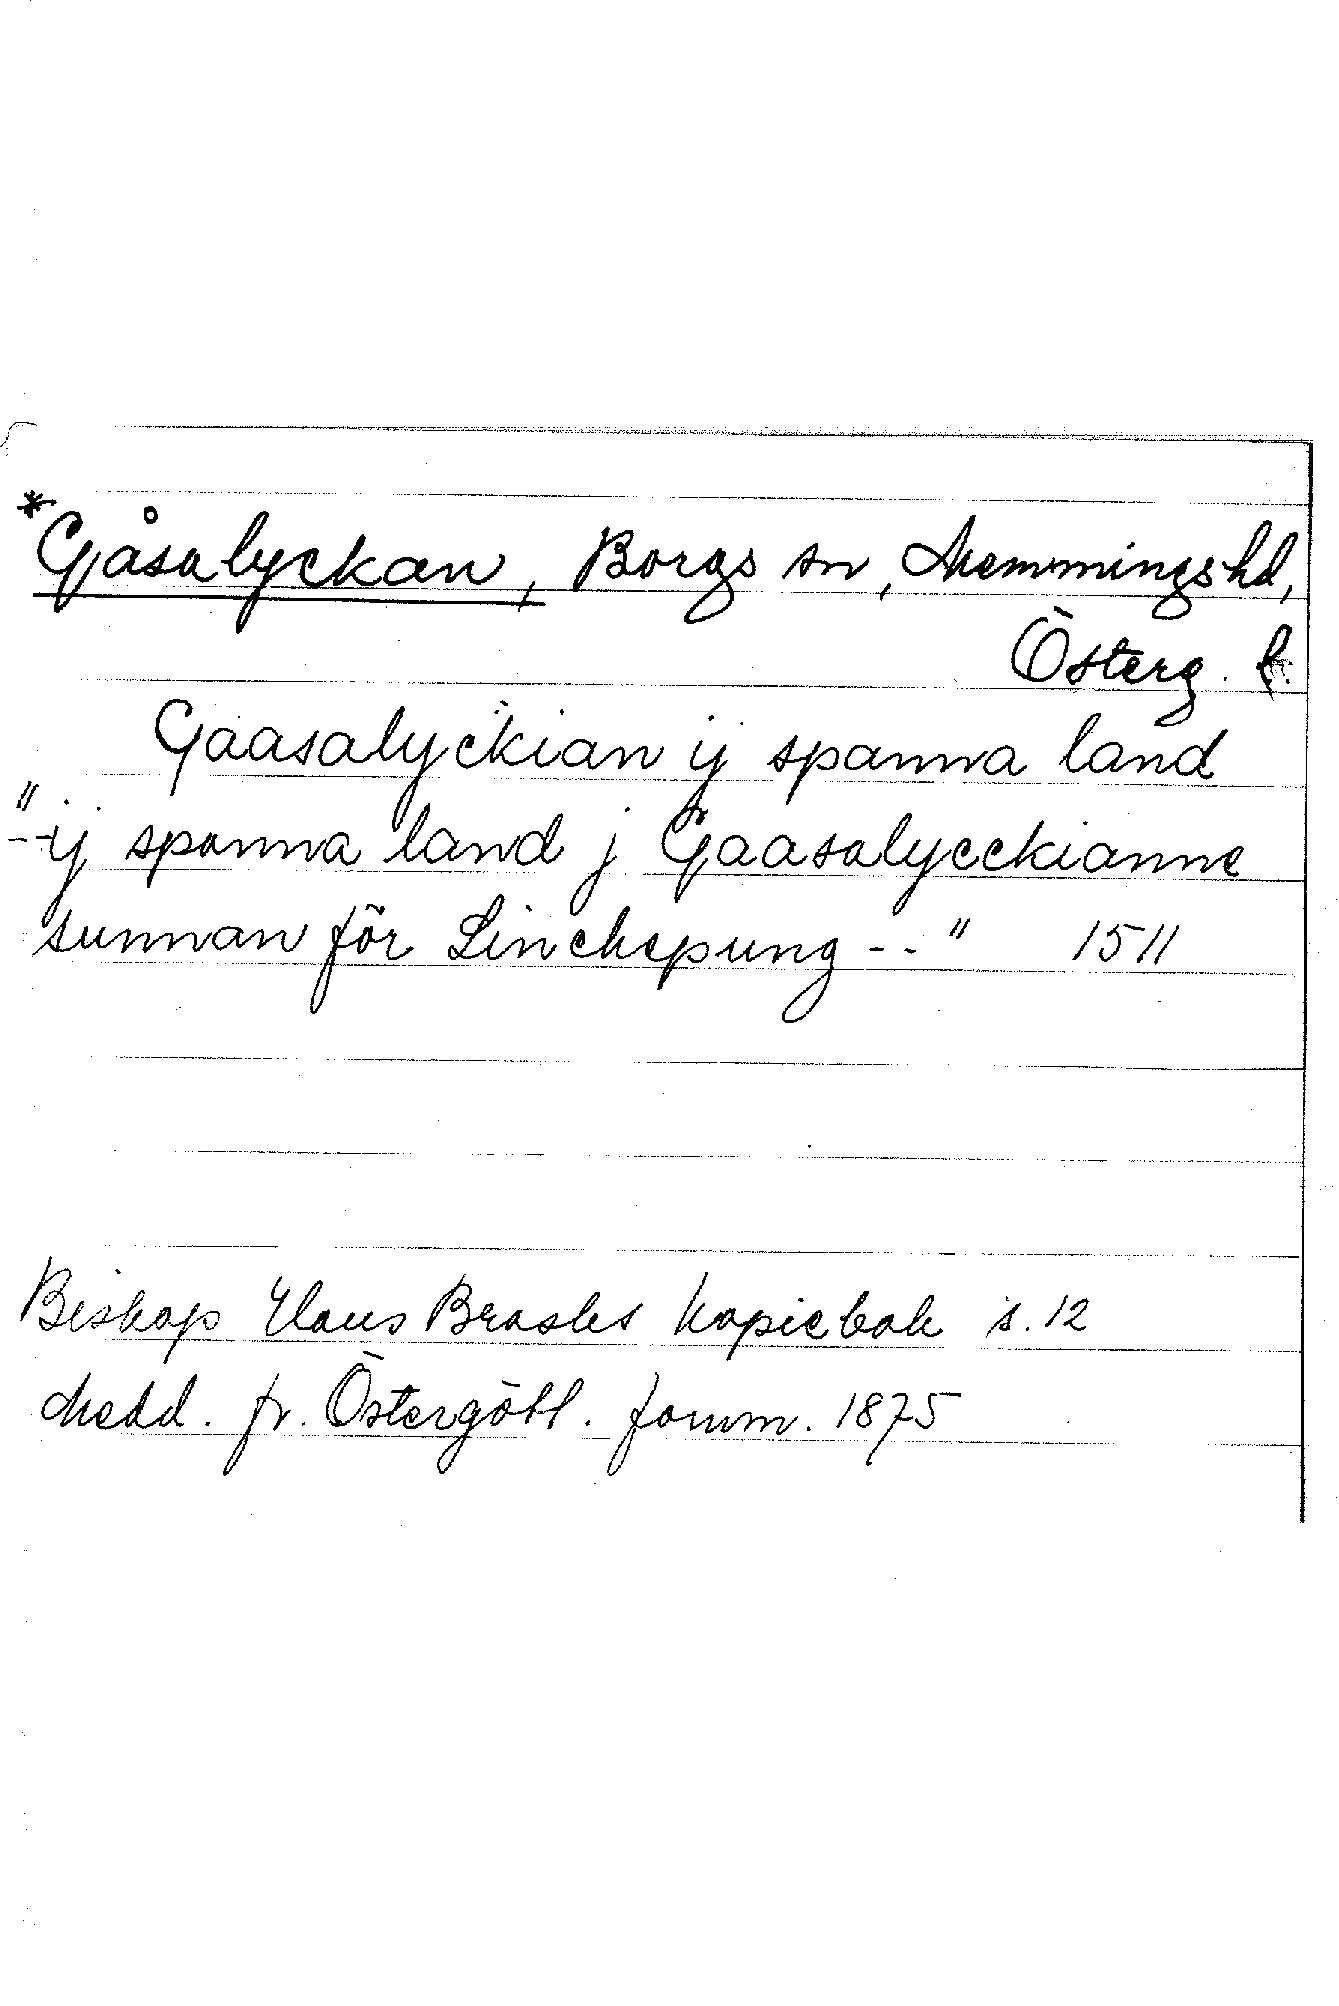 *Gåsalyckan, Borgs sn, Memmingshd,
Österg. l.
Gaasalyckian ij spanna land
"--ij spanna land j Gaasalycckianne
sunnan för Linchepung --" 1511
Biskop Hans Brasks kopiebok s. 12
Medd. fr. Östergötl. fornm. 1875